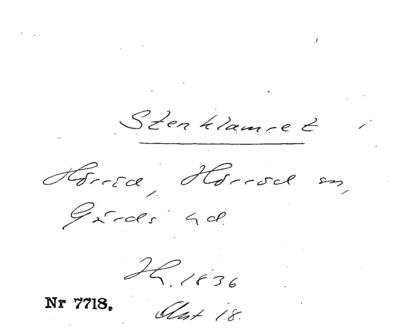 Stenklamret i
Hörröd, Hörröd sn,
Gärds hd.
Hl. 1836
Nr 7718. Akt 18.